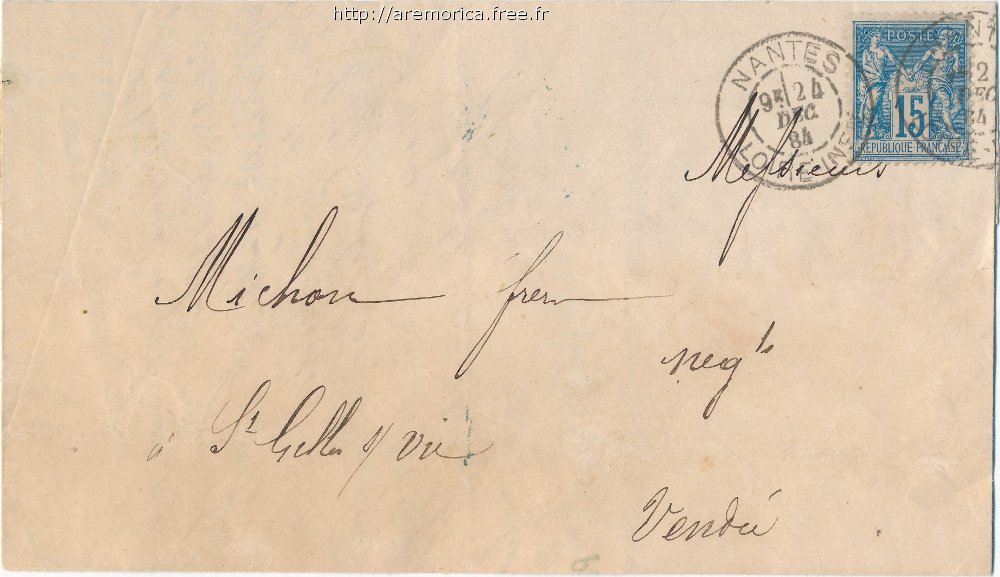 http://aremorica.free.fr
POSTE
15
REPUBLIQUE FRANÇAISE
NANTES
24
DEC
84
LOIRE INFRE
NT
2
DEC
84
Messieurs
Michon frères
negts
à St Gilles s/ Vie
Vendée